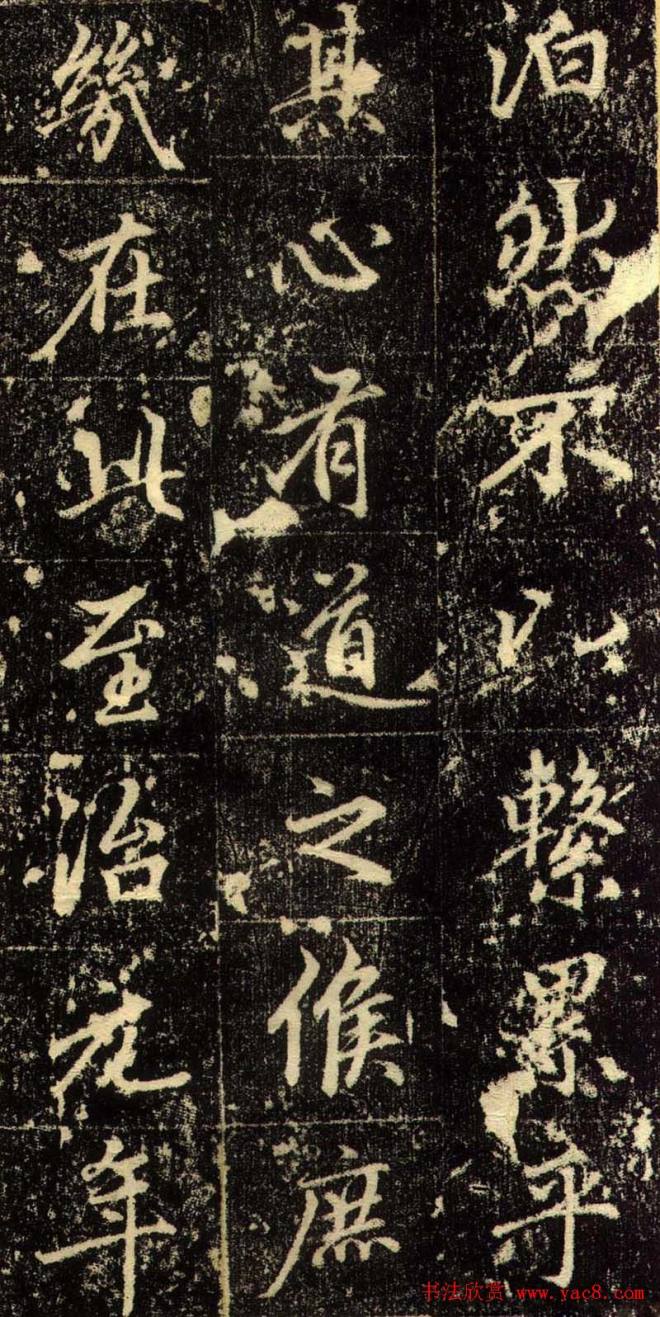 泊然不以繫累乎
其心有道之侯庶
幾在此至治元年
书法欣赏 www.yac8.com